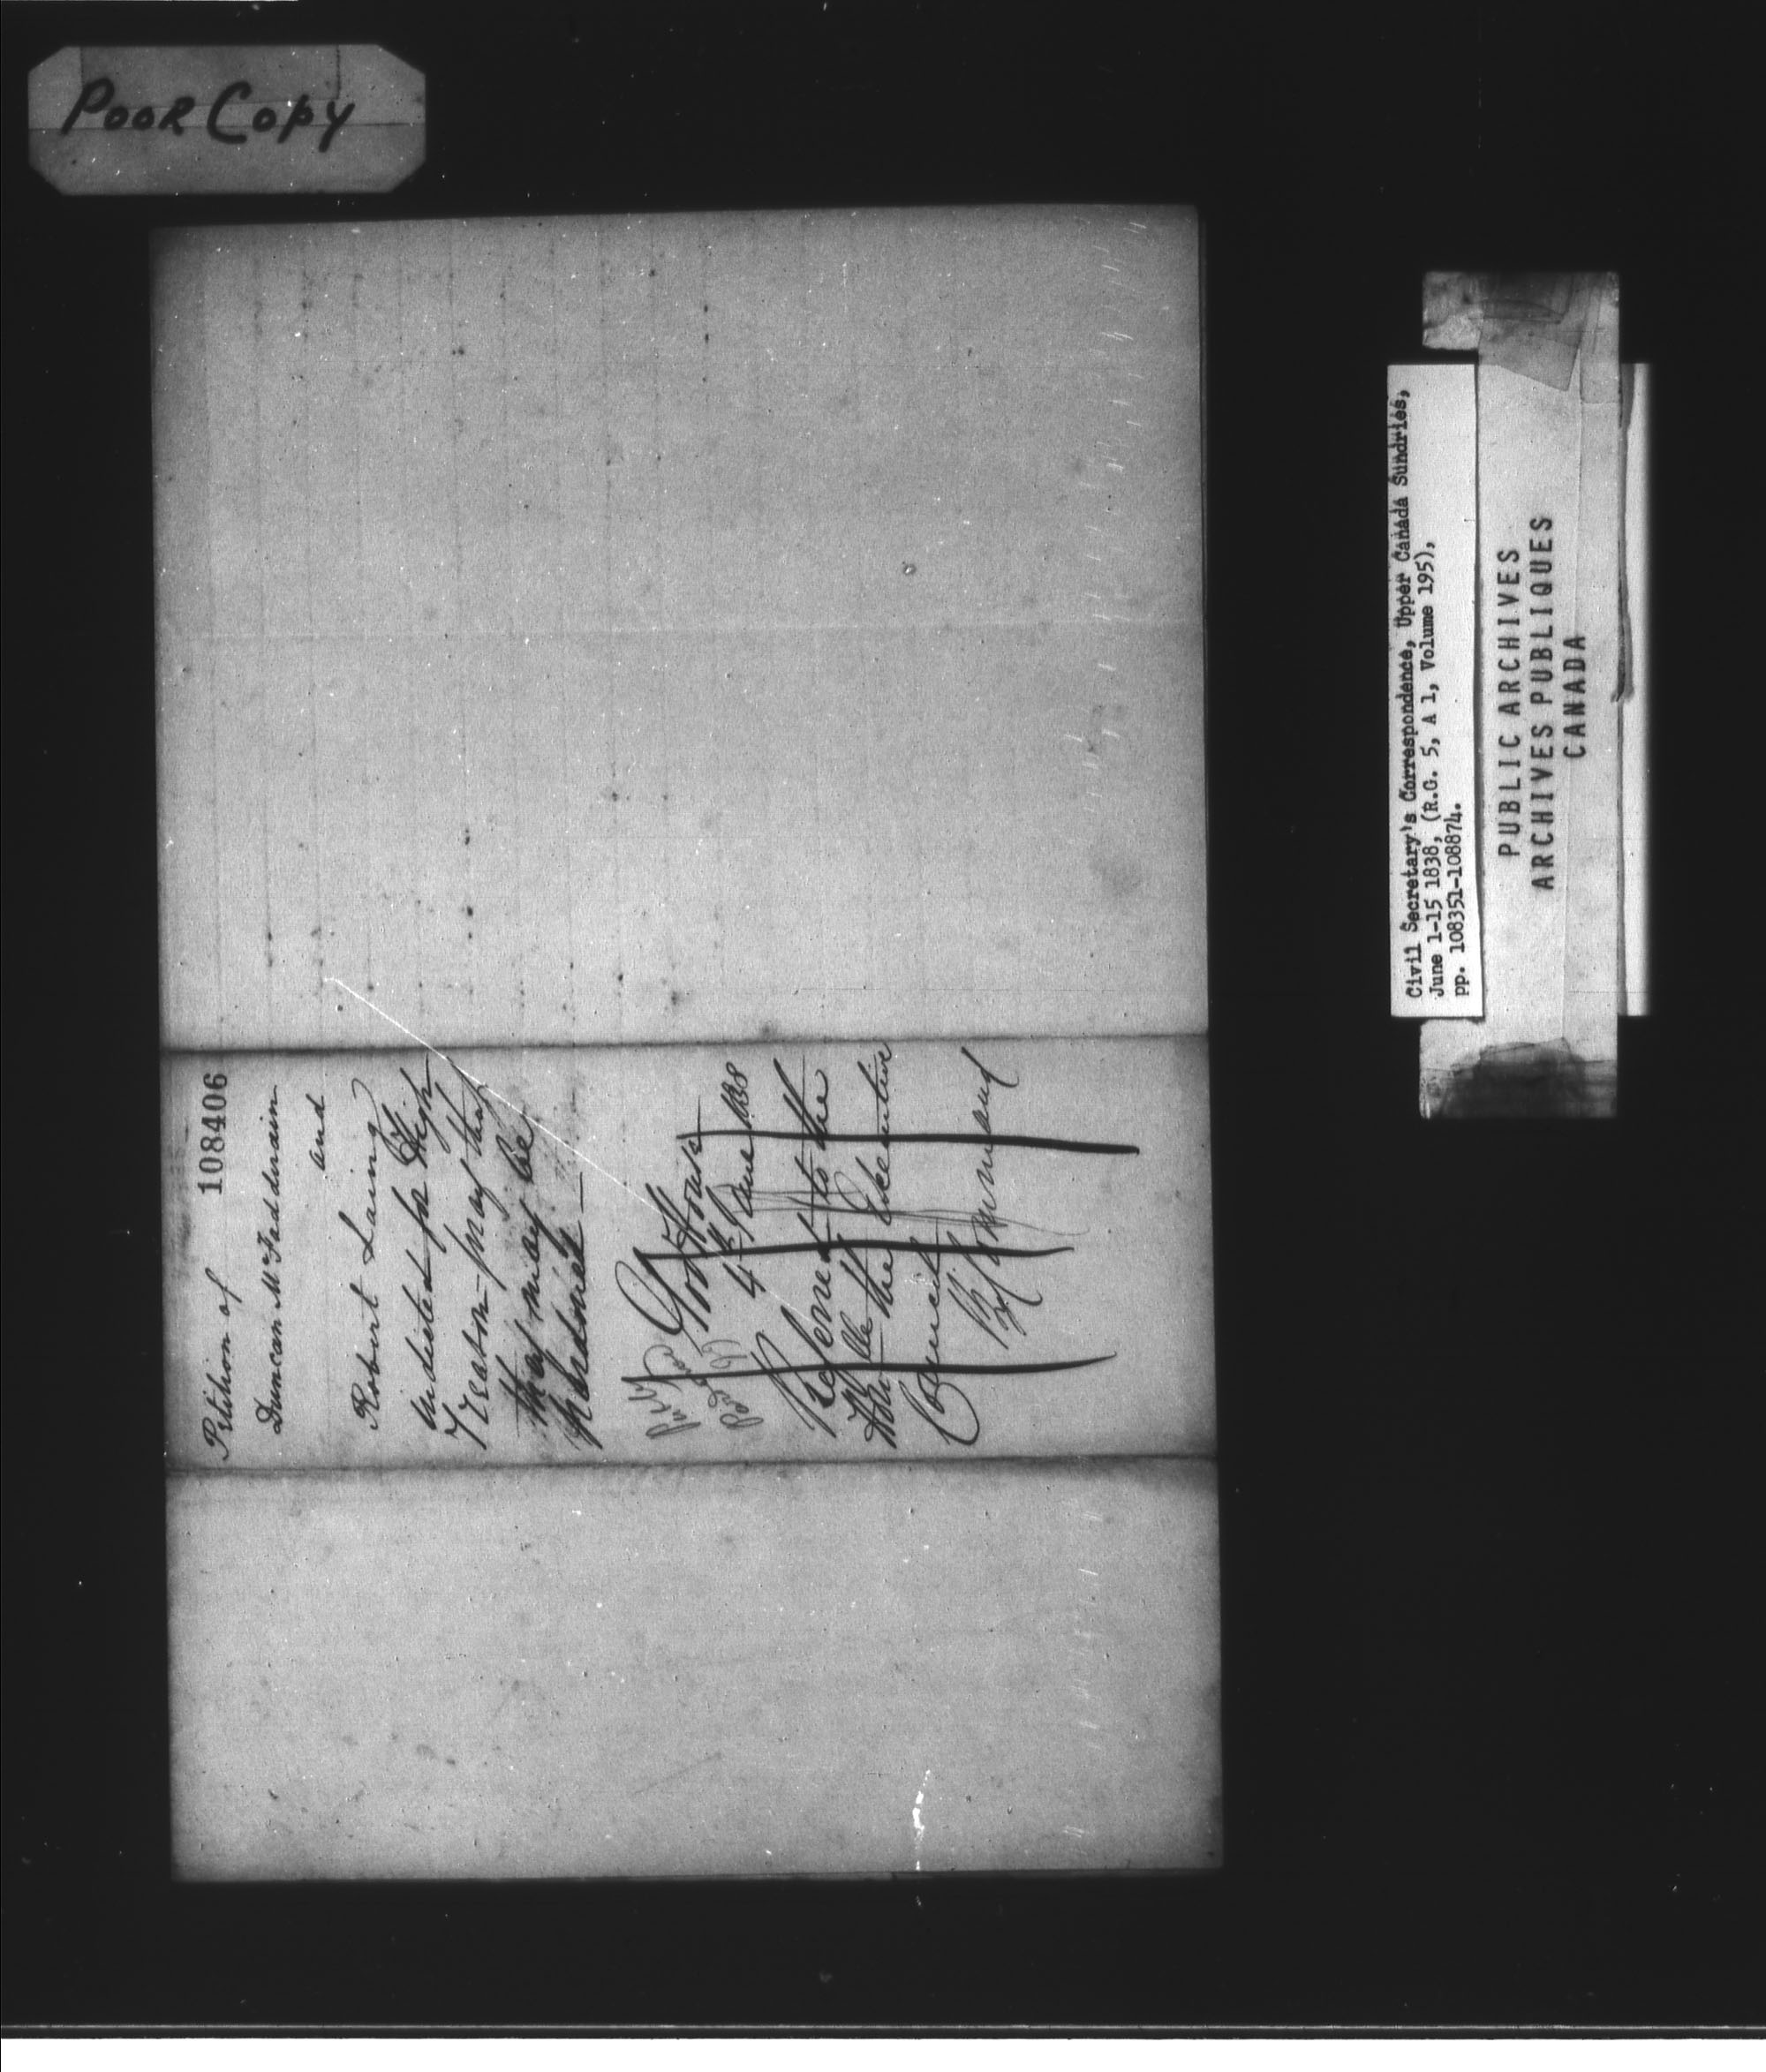 Poor Copy
108406
Petition of
Duncan McFadderain
and
Robert Laing
indicted for High
Treason – pray that
they may be
pardoned –
Govt House
4th June 1838
Referred to the
Honble the Executive
Council
By Command
Civil Secretary's Correspondence, Upper Canada Sundries,
June 1-15 1838, (R.G. 5, A 1, Volume 195),
pp. 108351-108874.
PUBLIC ARCHIVES
ARCHIVES PUBLIQUES
CANADA